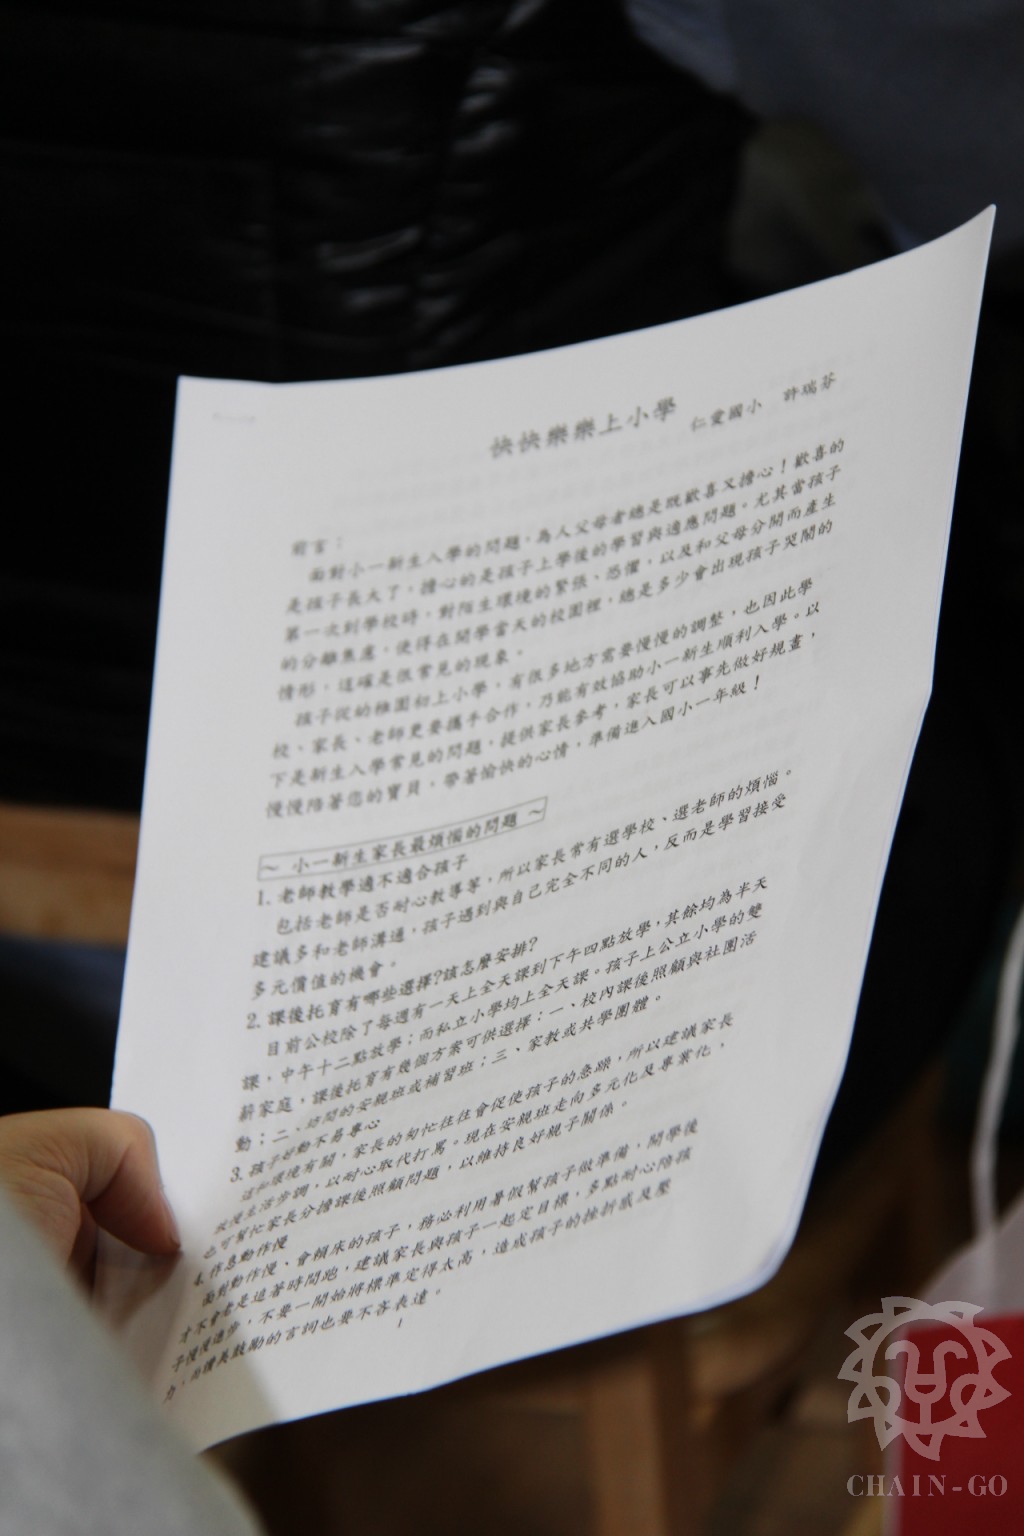 快快樂樂上小學
仁愛國小 許瑞芬
前言：
面對小一新生入學的問題，為人父母者總是既歡喜又擔心！歡喜的
是孩子長大了，擔心的是孩子上學後的學習與適應問題。尤其當孩子
第一次到學校時，對陌生環境的緊張、恐懼，以及和父母分開而產生
的分離焦慮，使得在開學當天的校園裡，總是多少會出現孩子哭鬧的
情形，這確是很常見的現象。
孩子從幼稚園初上小學，有很多地方需要慢慢的調整，也因此學
校、家長、老師更要攜手合作，乃能有效協助小一新生順利入學。以
下是新生入學常見的問題，提供家長參考，家長可以事先做好規畫，
慢慢陪著您的寶貝，帶著愉快的心情，準備進入國小一年級！
～ 小一新生家長最煩惱的問題 ～
1. 老師教學適不適合孩子
包括老師是否耐心教導等，所以家長常有選學校、選老師的煩惱。
建議多和老師溝通，孩子遇到與自己完全不同的人，反而是學習接受
多元價值的機會。
2. 課後托育有哪些選擇?該怎麼安排?
目前公校除了每週有一天上全天課到下午四點放學，其餘均為半天
課，中午十二點放學；而私立小學均上全天課。孩子上公立小學的雙
薪家庭，課後托育有幾個方案可供選擇：一、校內課後照顧與社團活
動；二、坊間的安親班或補習班；三、家教或共學團體。
3. 孩子好動不易專心
這和環境有關，家長的匆忙往往會促使孩子的急躁，所以建議家長
放慢生活步調，以耐心取代打罵。現在安親班走向多元化及專業化，
也可幫忙家長分擔課後照顧問題，以維持良好親子關係。
4. 作息動作慢
面對動作慢、會賴床的孩子，務必利用暑假幫孩子做準備，開學後
才不會老是追著時間跑，建議家長與孩子一起定目標，多點耐心陪孩
子慢慢進步，不要一開始將標準定得太高，造成孩子的挫折感及壓
力，而讚美鼓勵的言詞也要不吝表達。
1
CHAIN-GO